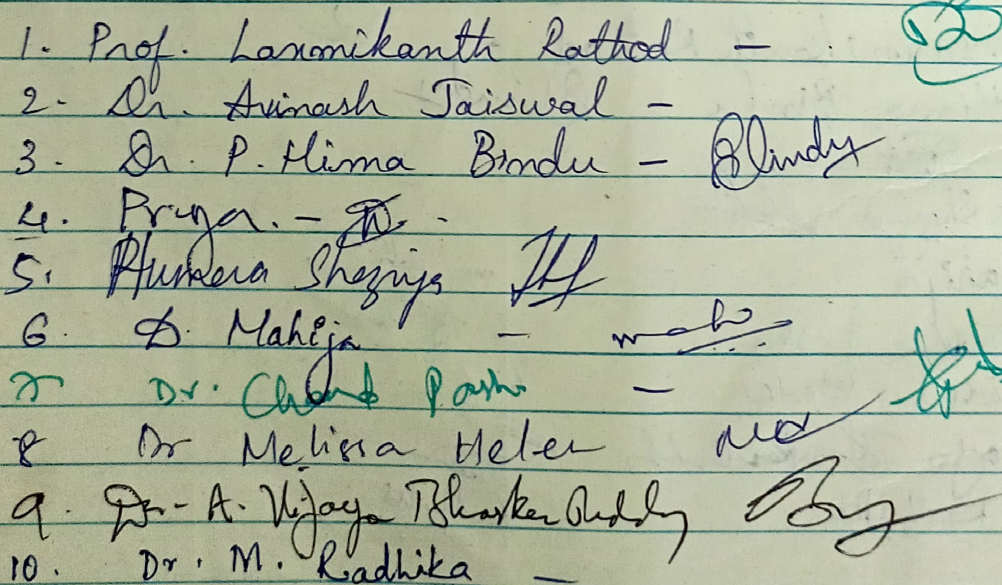 1. Prof. Laxmikanth Rathod -
2. Dr. Avinash Jaiswal -
3. Dr. P. Hima Bindu -
4. Priya. -
5. Humera
6. D. Mahija -
7 Dr. Chand Pasha -
8 Dr Melissa Helen
9. Dr. A. Vijaya Bhasker Reddy
10. Dr. M. Radhika -